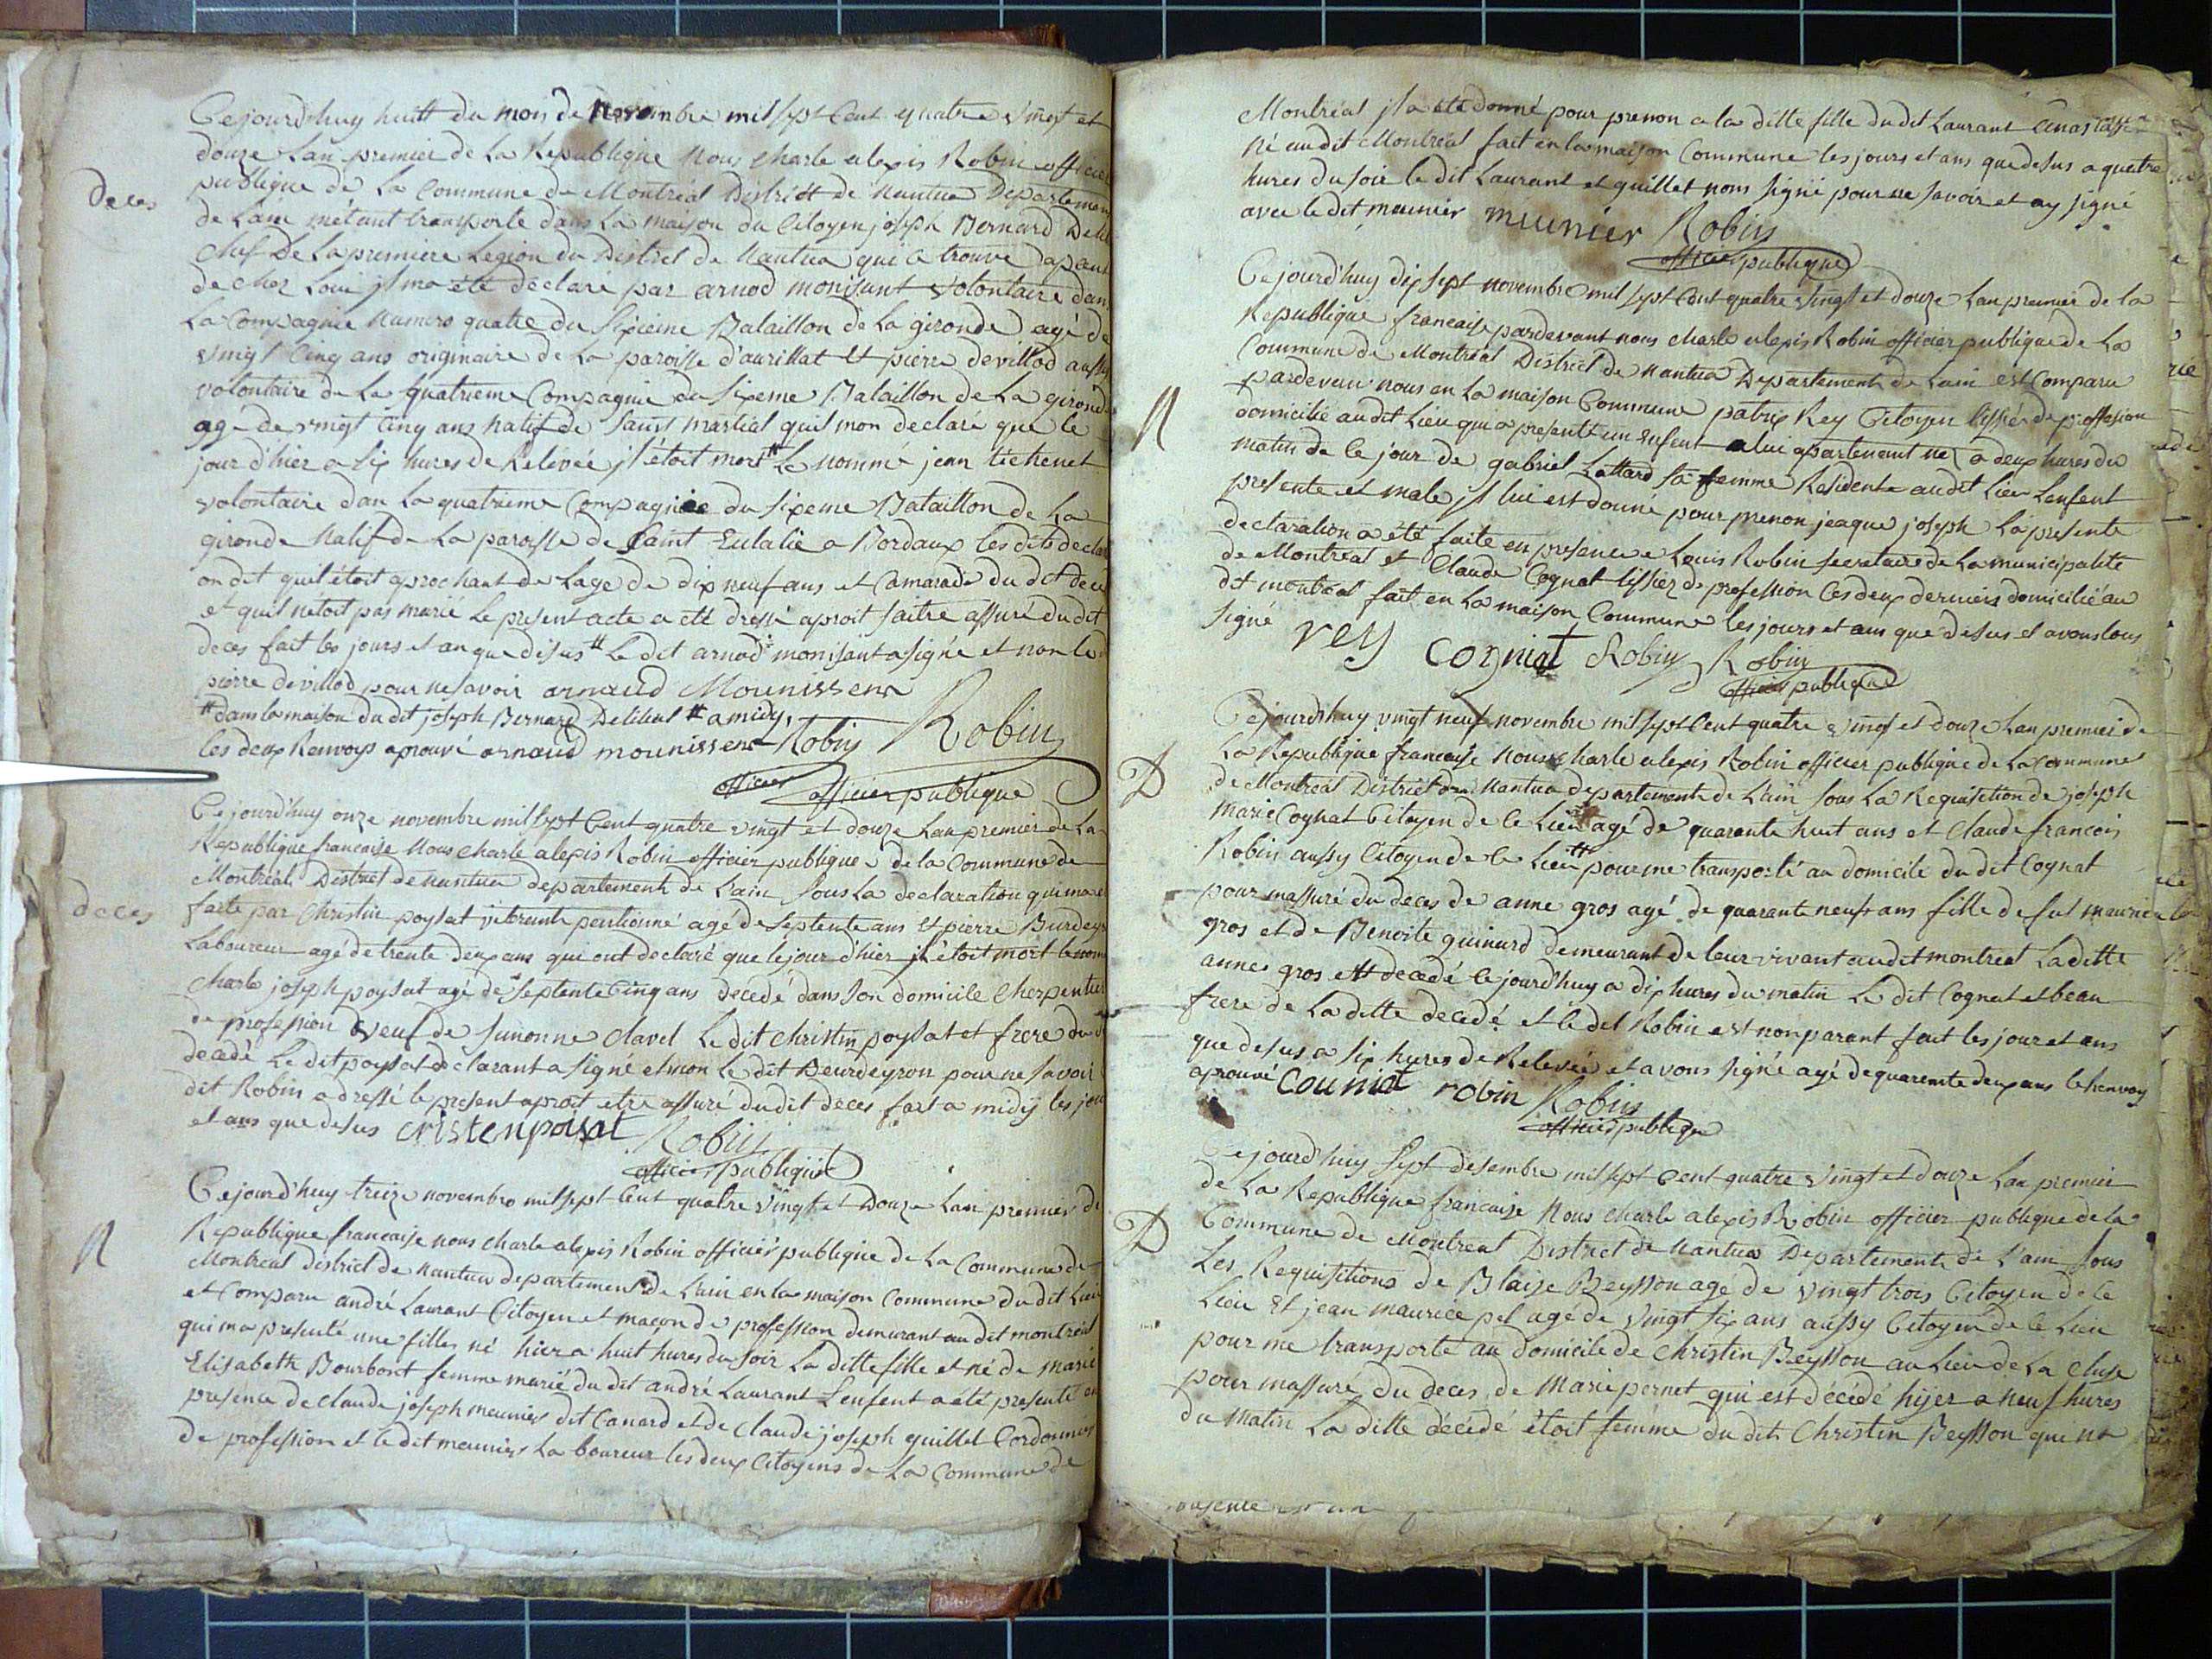 Cejourd'huy huitt du mois de novembre mil sept Cent quatre vingt et
douze Lan premier de La Republique nous charle alexis Robin officier
publique de La Commune de Montréal District de nantua Departement
deces
de Lain métant transporté dans La maison du Citoyen joseph Bernard
chef De La premiere Legion du District de nantua qui a trouvé
de chez Loui jl ma été déclaré par arnod monisant volontaire dan
La Compagnie numero quatre du sixieme Bataillon de La gironde agé de
vingt Cinq ans originaire de La paroisse d'aurillat et pierre devillod aussy
volontaire de La quatrieme Compagnie du sixeme Bataillon de La gironde
agé de vingt Cinq ans natif de saint martial quil mon declaré que le
jour d'hier a six hures de Relevée jl étoit mort # Le nomme jean techenet
volontaire dan La quatrieme Compagniee du sixeme Bataillon de La
gironde natif de La paroisse de saint Eulalie a Bordaux les dits
on dit quil étoit aprochant de Lage de dix neuf ans et Camarade du dit
et quil nétoit pas marié Le present acte a été dressé aproit saitre assuré du dit
deces fait les jours et an que desus # Le dit arnod monisant a signé et non le
pierre devillod pour ne savoir arnaud Mounissens
# dans la maison du dit joseph Bernard # a midy,
les deux Renvoys aprouvé arnaud mounissens Robin Robin
officier officier publique
Cejourd'huy onze novembre mil sept Cent quatre vingt et douze Lan premier de La
Republique francaise nous charle alexis Robin officier publique de la Commune de
Montréal District de nantua departement de Lain sous La declaration qui ma
deces
faite par Christin poysat pentionné agé de septente ans et pierre
Laboureur agé de trente deux ans qui ont declaré que le jour d'hier jl étoit mort le
charle joseph poysat agé de septente Cinq ans decedé dans son domicile Cherpentier
de profession veuf de simonne clavel Le dit christin poysat et frere du
decedé Le dit poysat declarant a signé et non Le dit Beurdeyron pour ne savoir
dit Robin a dressé le present aproit etre assuré du dit deces fait a midy les
et ans que desus cristenpoisat Robin
officier publique
Cejourd'huy treize novembre mil sept Cent quatre vingt et Douze Lan premier de
Republique francaise nous charle alexis Robin officier publique de La Commune de
N
Montréal district de nantua departement de Lain en la maison Commune du dit Lieu
et Comparu andré Laurant Citoyen et macon de profession demurant au dit montréal
qui ma presenté une filles né hier a huit hures du soir La ditte fille et né de marie
Elisabeth Bourbont femme marié du dit andré Laurant Lenfent a été presenté en
presence de claude joseph meunier dit Canard et de claude joseph guillet Cordonnier
de profession et le dit meunier La boureur les deux Citoyens de La Commune de
Montréal jl a été donné pour prenon a la ditte fille du dit Laurant
né au dit Montréal fait en la maison Commune les jours et ans que desus a quatre
hures du soir le dit Laurant et guillet nons signé pour ne savoir et ay signé
avec le dit meunier munier Robin
officier publique
Cejourd'huy dix sept novembre mil sept Cent quatre vingt et douze Lan premier de la
Republique francaise pardevant nous charle alexis Robin officier publique de La
Commune de Montréal District de nantua Departement de Lain est Comparu
N
pardevan nous en La maison Commune patrix Rey Citoyen tissier de proffesion
domicilié au dit Lieu qui a presenté un enfent a lui apartenent né a deux hures du
matin de Ce jour de gabriel Lottard sa femme Residente au dit Lieu Lenfent
presente et male jl lui est donné pour prenon jeaque joseph La presente
declaration a été faite en presence Louis Robin secretaire de La municipalité
de Montréal et Claude Cognat tissier de profession les deux derniers domicilié au
dit montréal fait en La maison Commune les jours et ans que desus et avons tous
signé rey Cogniat Robin Robin
officier publique
Cejourd'huy vingt neuf novembre mil sept Cent quatre vingt et douze Lan premier de
La Republique francaise nous charle alexis Robin officier publique de La Commune
D
de Montréal District de nantua departement de Lain sous La Requisition de joseph
marie Cognat Citoyen de Ce Lieu agé de quarante huit ans et claude francois
Robin aussy Citoyen de Ce Lieu # pour me transporté au domicile du dit Cognat
pour massuré du deces de anne gros agé de quarante neuf ans fille de fut maurice
gros et de Benoite guinard demeurant de leur vivant au dit montreal La ditte
anne gros ett decedé Cejourd'huy a dix hures du matin Le dit Cognat et beau
frere de La ditte decedé et le dit Robin est non parant fait les jour et ans
que desus a six hures de Relevée et avons signé agé de quarente deux ans le Renvoy
aprouvé Couniat robin Robin
officier publique
Cejourd'huy sept desembre mil sept Cent quatre vingt et douze Lan premier
de La Republique francaise nous charle alexis Robin officier publique de la
D
Commune de Montreal District de nantua Departement de L'ain sous
Les Requisitions de Blaise Beysson agé de vingt trois Citoyen de Ce
Lieu et jean maurice pel agé de vingt six ans aussy Citoyen de Ce Lieu
pour me transporté au domicile de christin Beysson au Lieu de La cluse
pour massuré du deces de Marie pernet qui est décédé hijer a neuf hures
du matin La ditte décédé étoit femme du dit Christin Beysson qui na